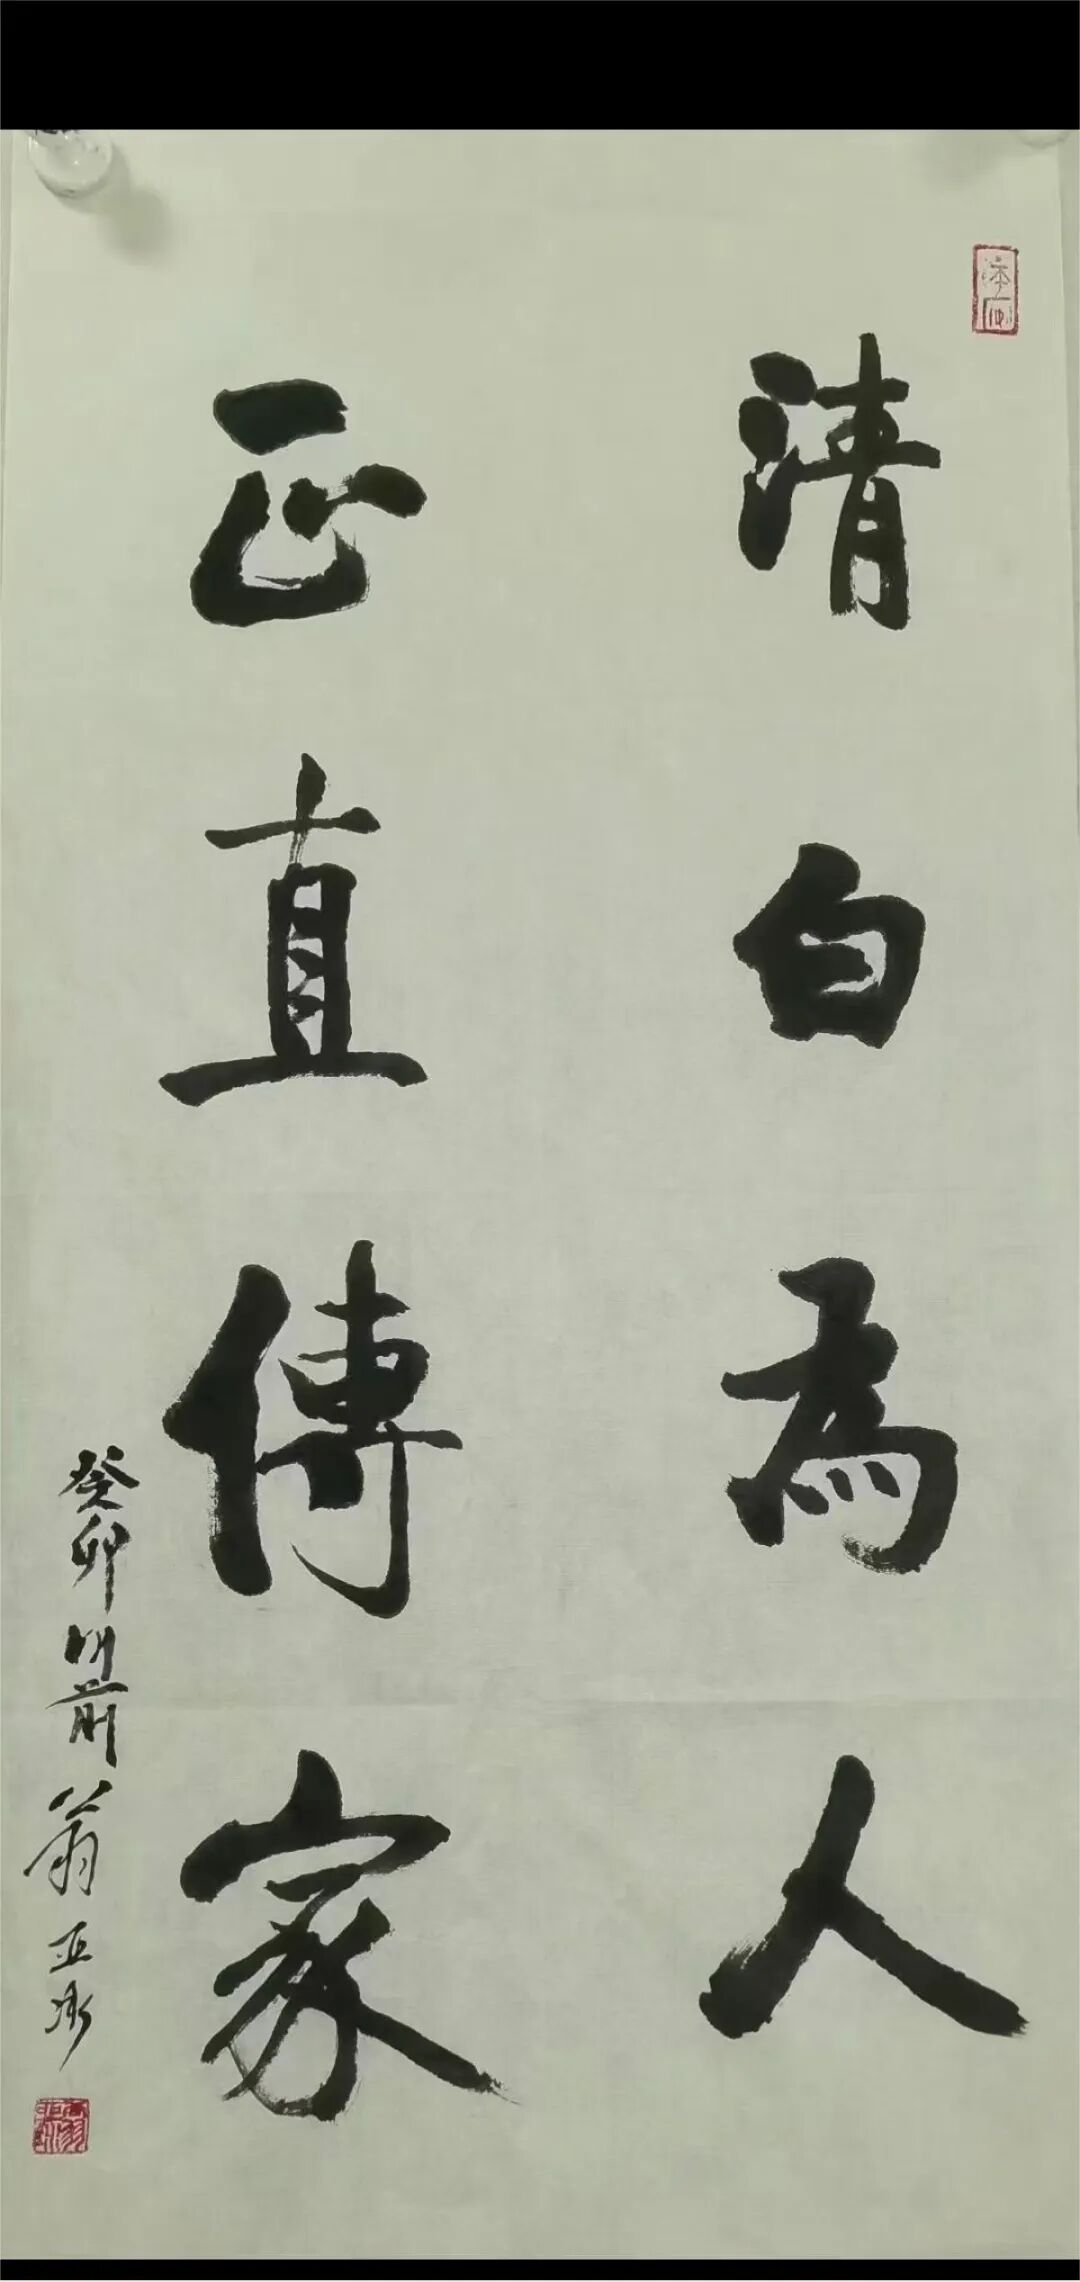 清白為人
正直傳家
癸卯明前翁亚